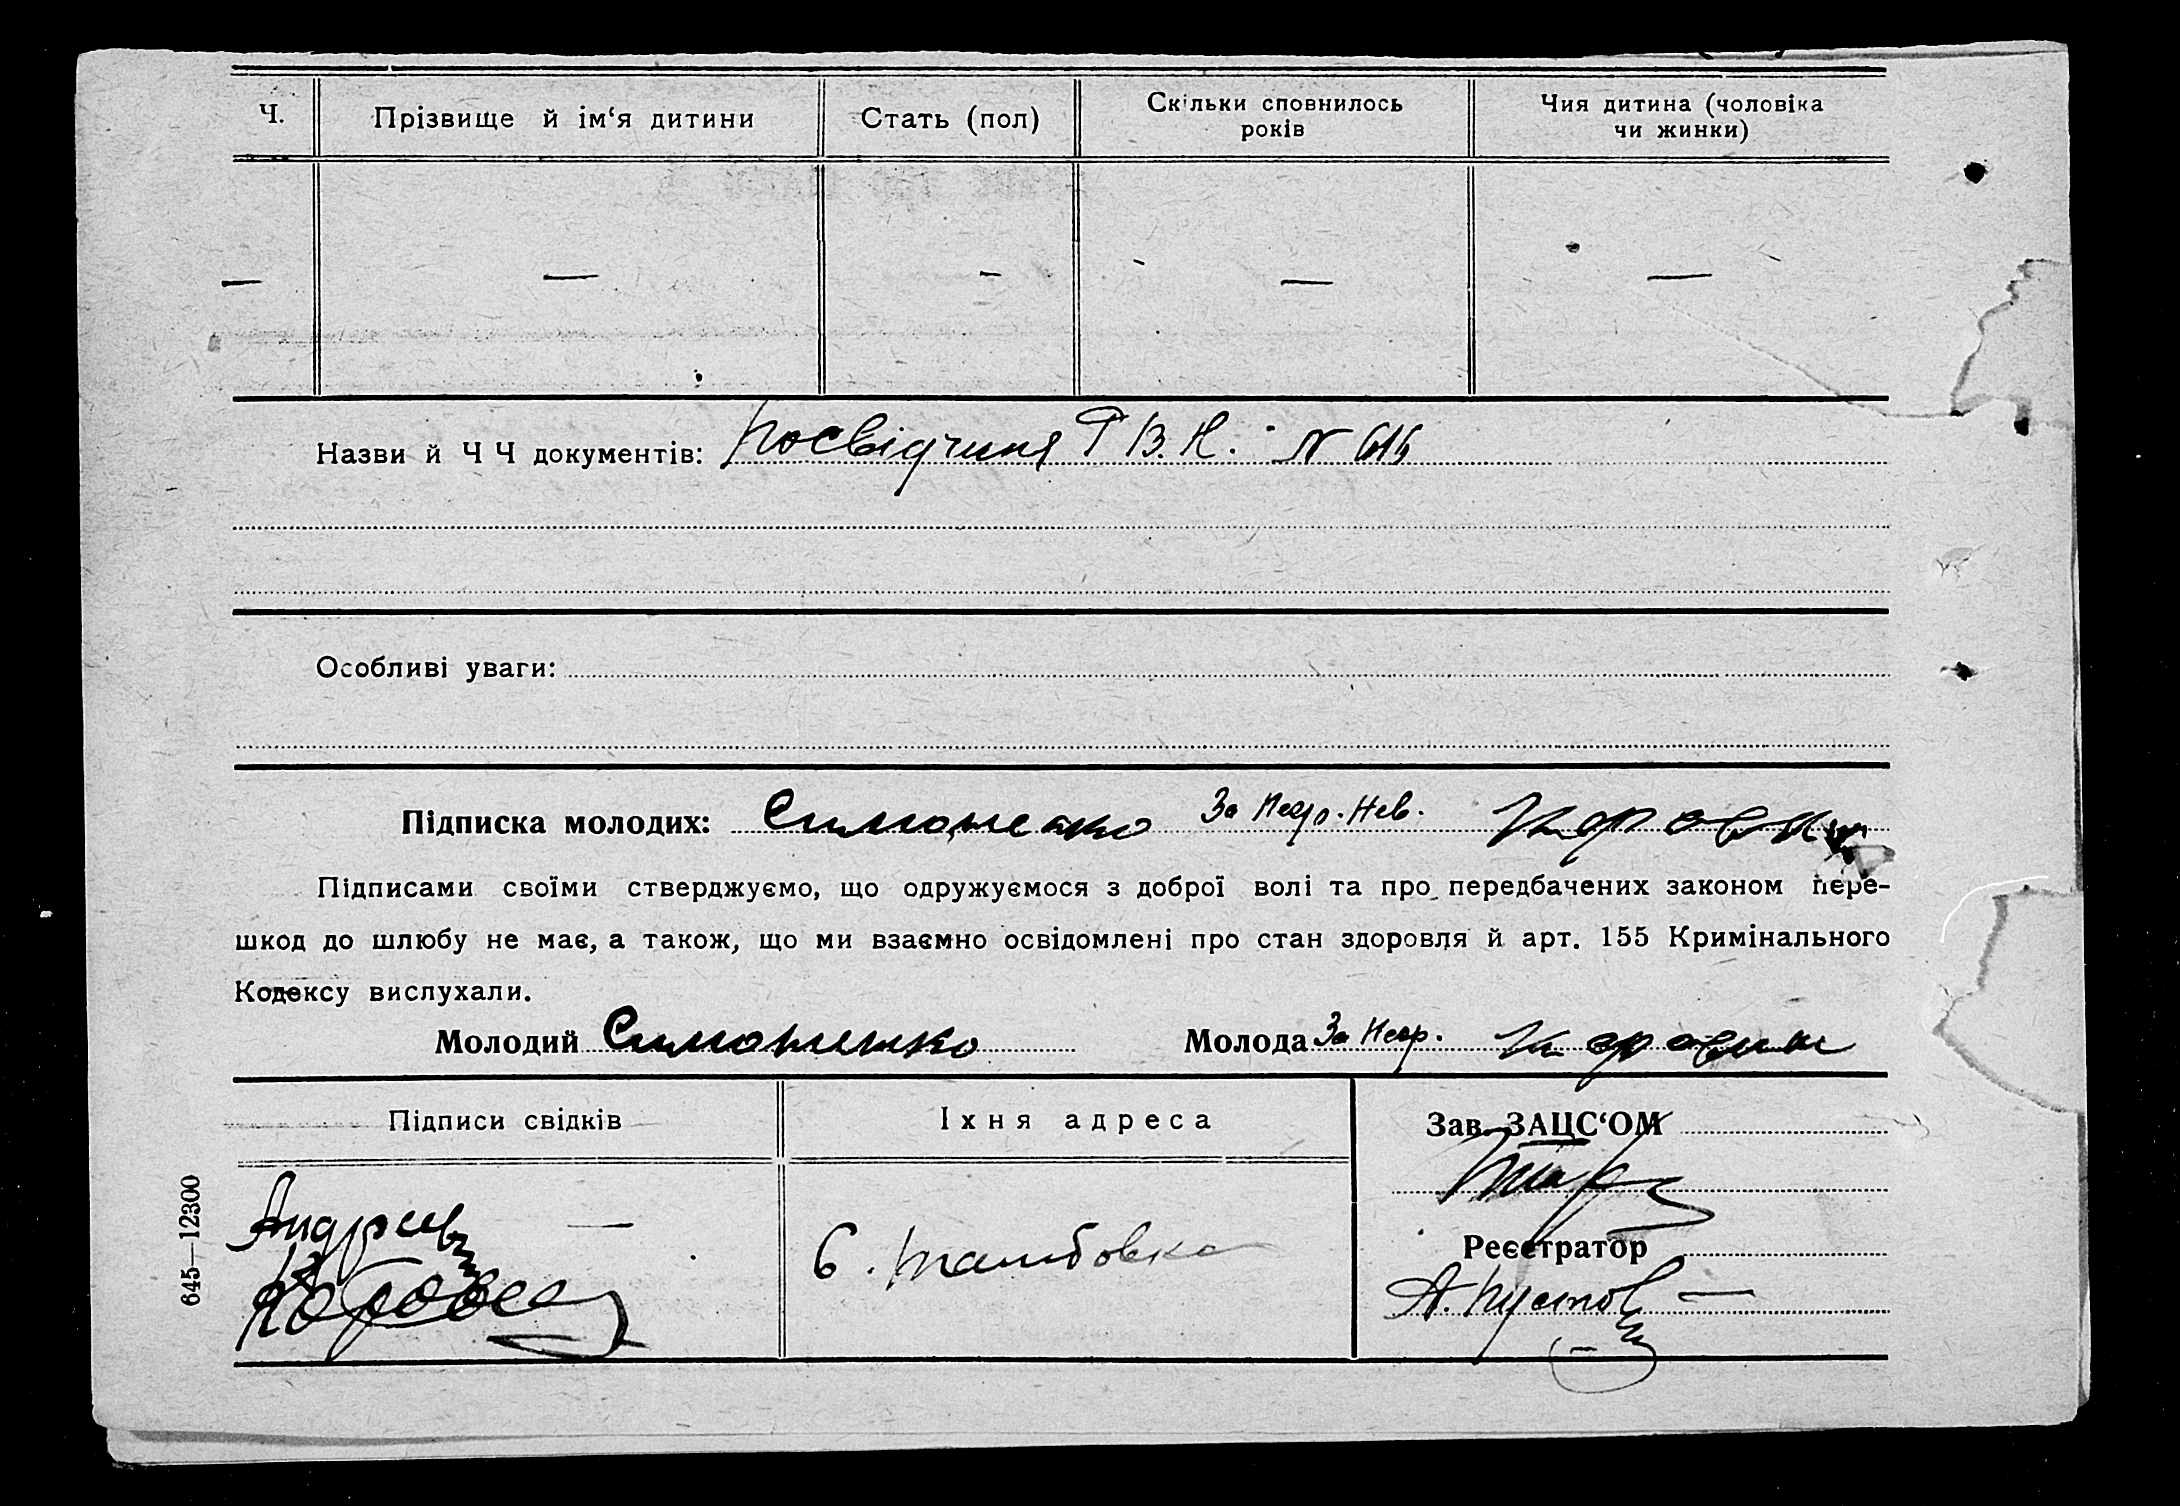 Ч.
Прізвище й ім‘я дитини
Стать (пол)
Скільки сповнилось
років
Чия дитина (чоловіка
чи жинки)
— — - — —
Назви й Ч Ч документів: Посвідчиня Р В. К. N
Особливі уваги:
Підписка молодих: Симоненко За Негр. Нев.
Підписами своїми стверджуємо, що одружуємося з доброї волі та про передбачених законом пере-
шкод до шлюбу не має, а також, що ми взаємно освідомлені про стан здоровля й арт. 155 Кримінального
Кодексу вислухали.
Молодий Симоненко Молода За Негр.
Підписи свідків
Їхня адреса
Зав. ЗАЦС‘ОМ
с. Тамбовка
Реєстратор
А. Пустов
645—12300